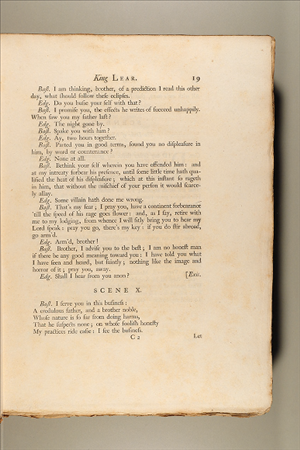 King LEAR. 19
Bast. I am thinking, brother, of a prediction I read this other
day, what should follow these eclipses.
Edg. Do you busie your self with that?
Bast. I promise you, the effects he writes of succeed unhappily.
When saw you my father last?
Edg. The night gone by.
Bast. Spake you with him?
Edg. Ay, two hours together.
Bast. Parted you in good terms, found you no displeasure in
him, by word or countenance?
Edg. None at all.
Bast. Bethink your self wherein you have offended him: and
at my intreaty forbear his presence, until some little time hath qua-
lified the heat of his displeasure; which at this instant so rageth
in him, that without the mischief of your person it would scarce-
ly allay.
Edg. Some villain hath done me wrong.
Bast. That's my fear; I pray you, have a continent forbearance
'till the speed of his rage goes slower: and, as I say, retire with
me to my lodging, from whence I will fitly bring you to hear my
Lord speak: pray you go, there's my key: if you do stir abroad,
go arm'd.
Edg. Arm'd, brother!
Bast. Brother, I advise you to the best; I am no honest man
if there be any good meaning toward you: I have told you what
I have seen and heard, but faintly; nothing like the image and
horror of it; pray you, away.
Edg. Shall I hear from you anon? [Exit.
SCENE X.
Bast. I serve you in this business:
A credulous father, and a brother noble,
Whose nature is so far from doing harms,
That he suspects none; on whose foolish honesty
My practices ride easie: I see the business.
C 2 Let